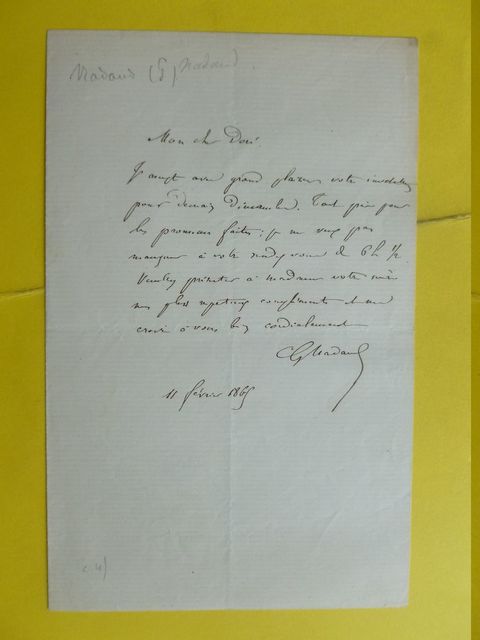 Nadaud (G) Nadaud.
Mon cher Doré.
J'accepte avec grand plaisir votre invitation
pour demain Dimanche. Tant pis pour
les promesses faites; je ne veux pas
manquer à votre rendez vous de 6 h 1/2.
Veuillez présenter à madame votre mère
mes plus respectueux compliments et me
croire à vous bien cordialement
G Nadaud
11 février 1865